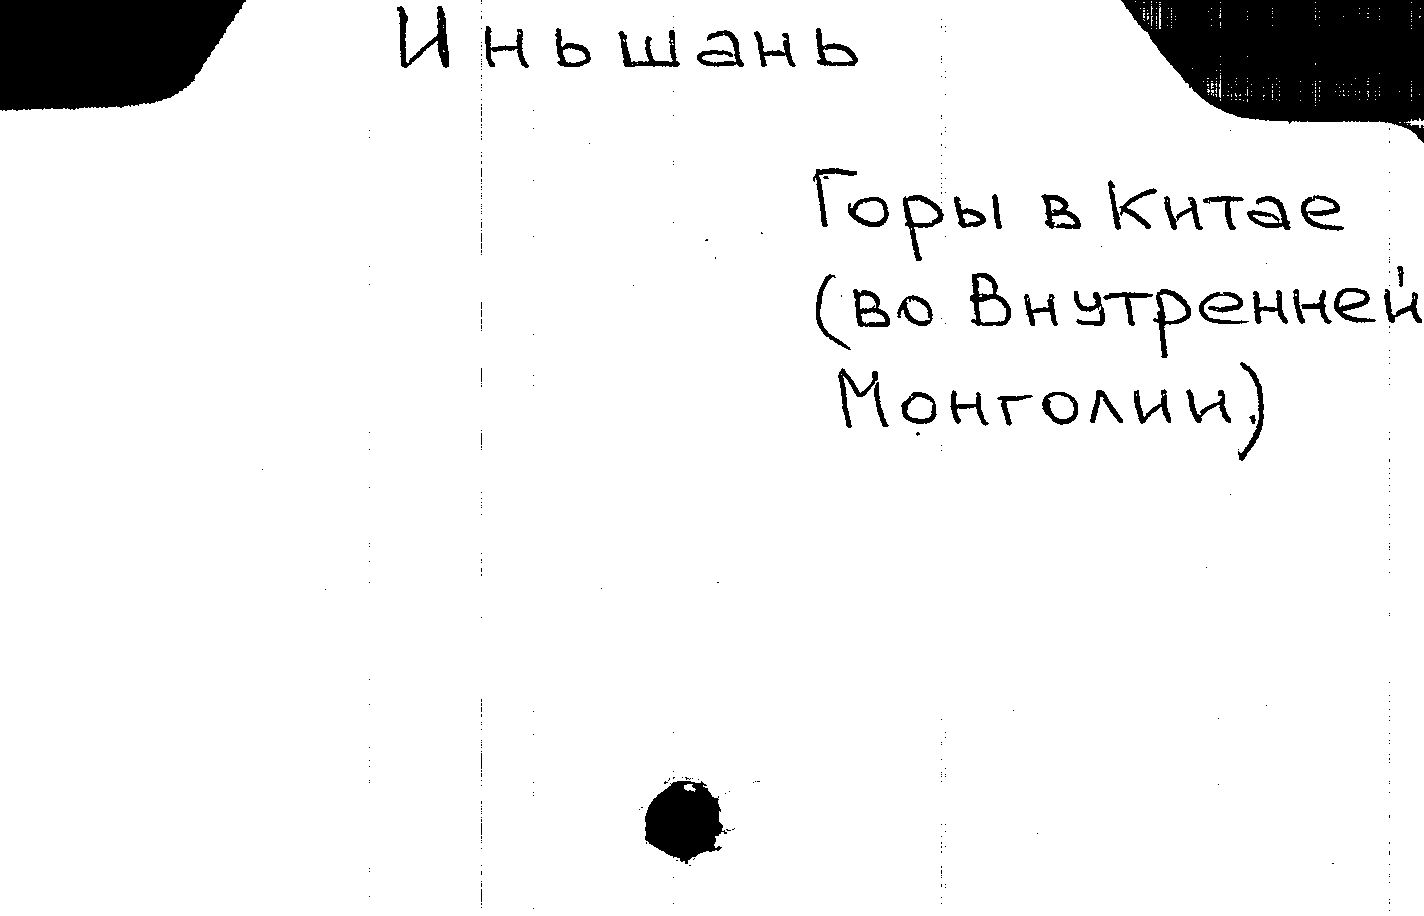 Иньшань
Горы в Китае
(во Внутренней
Монголии)